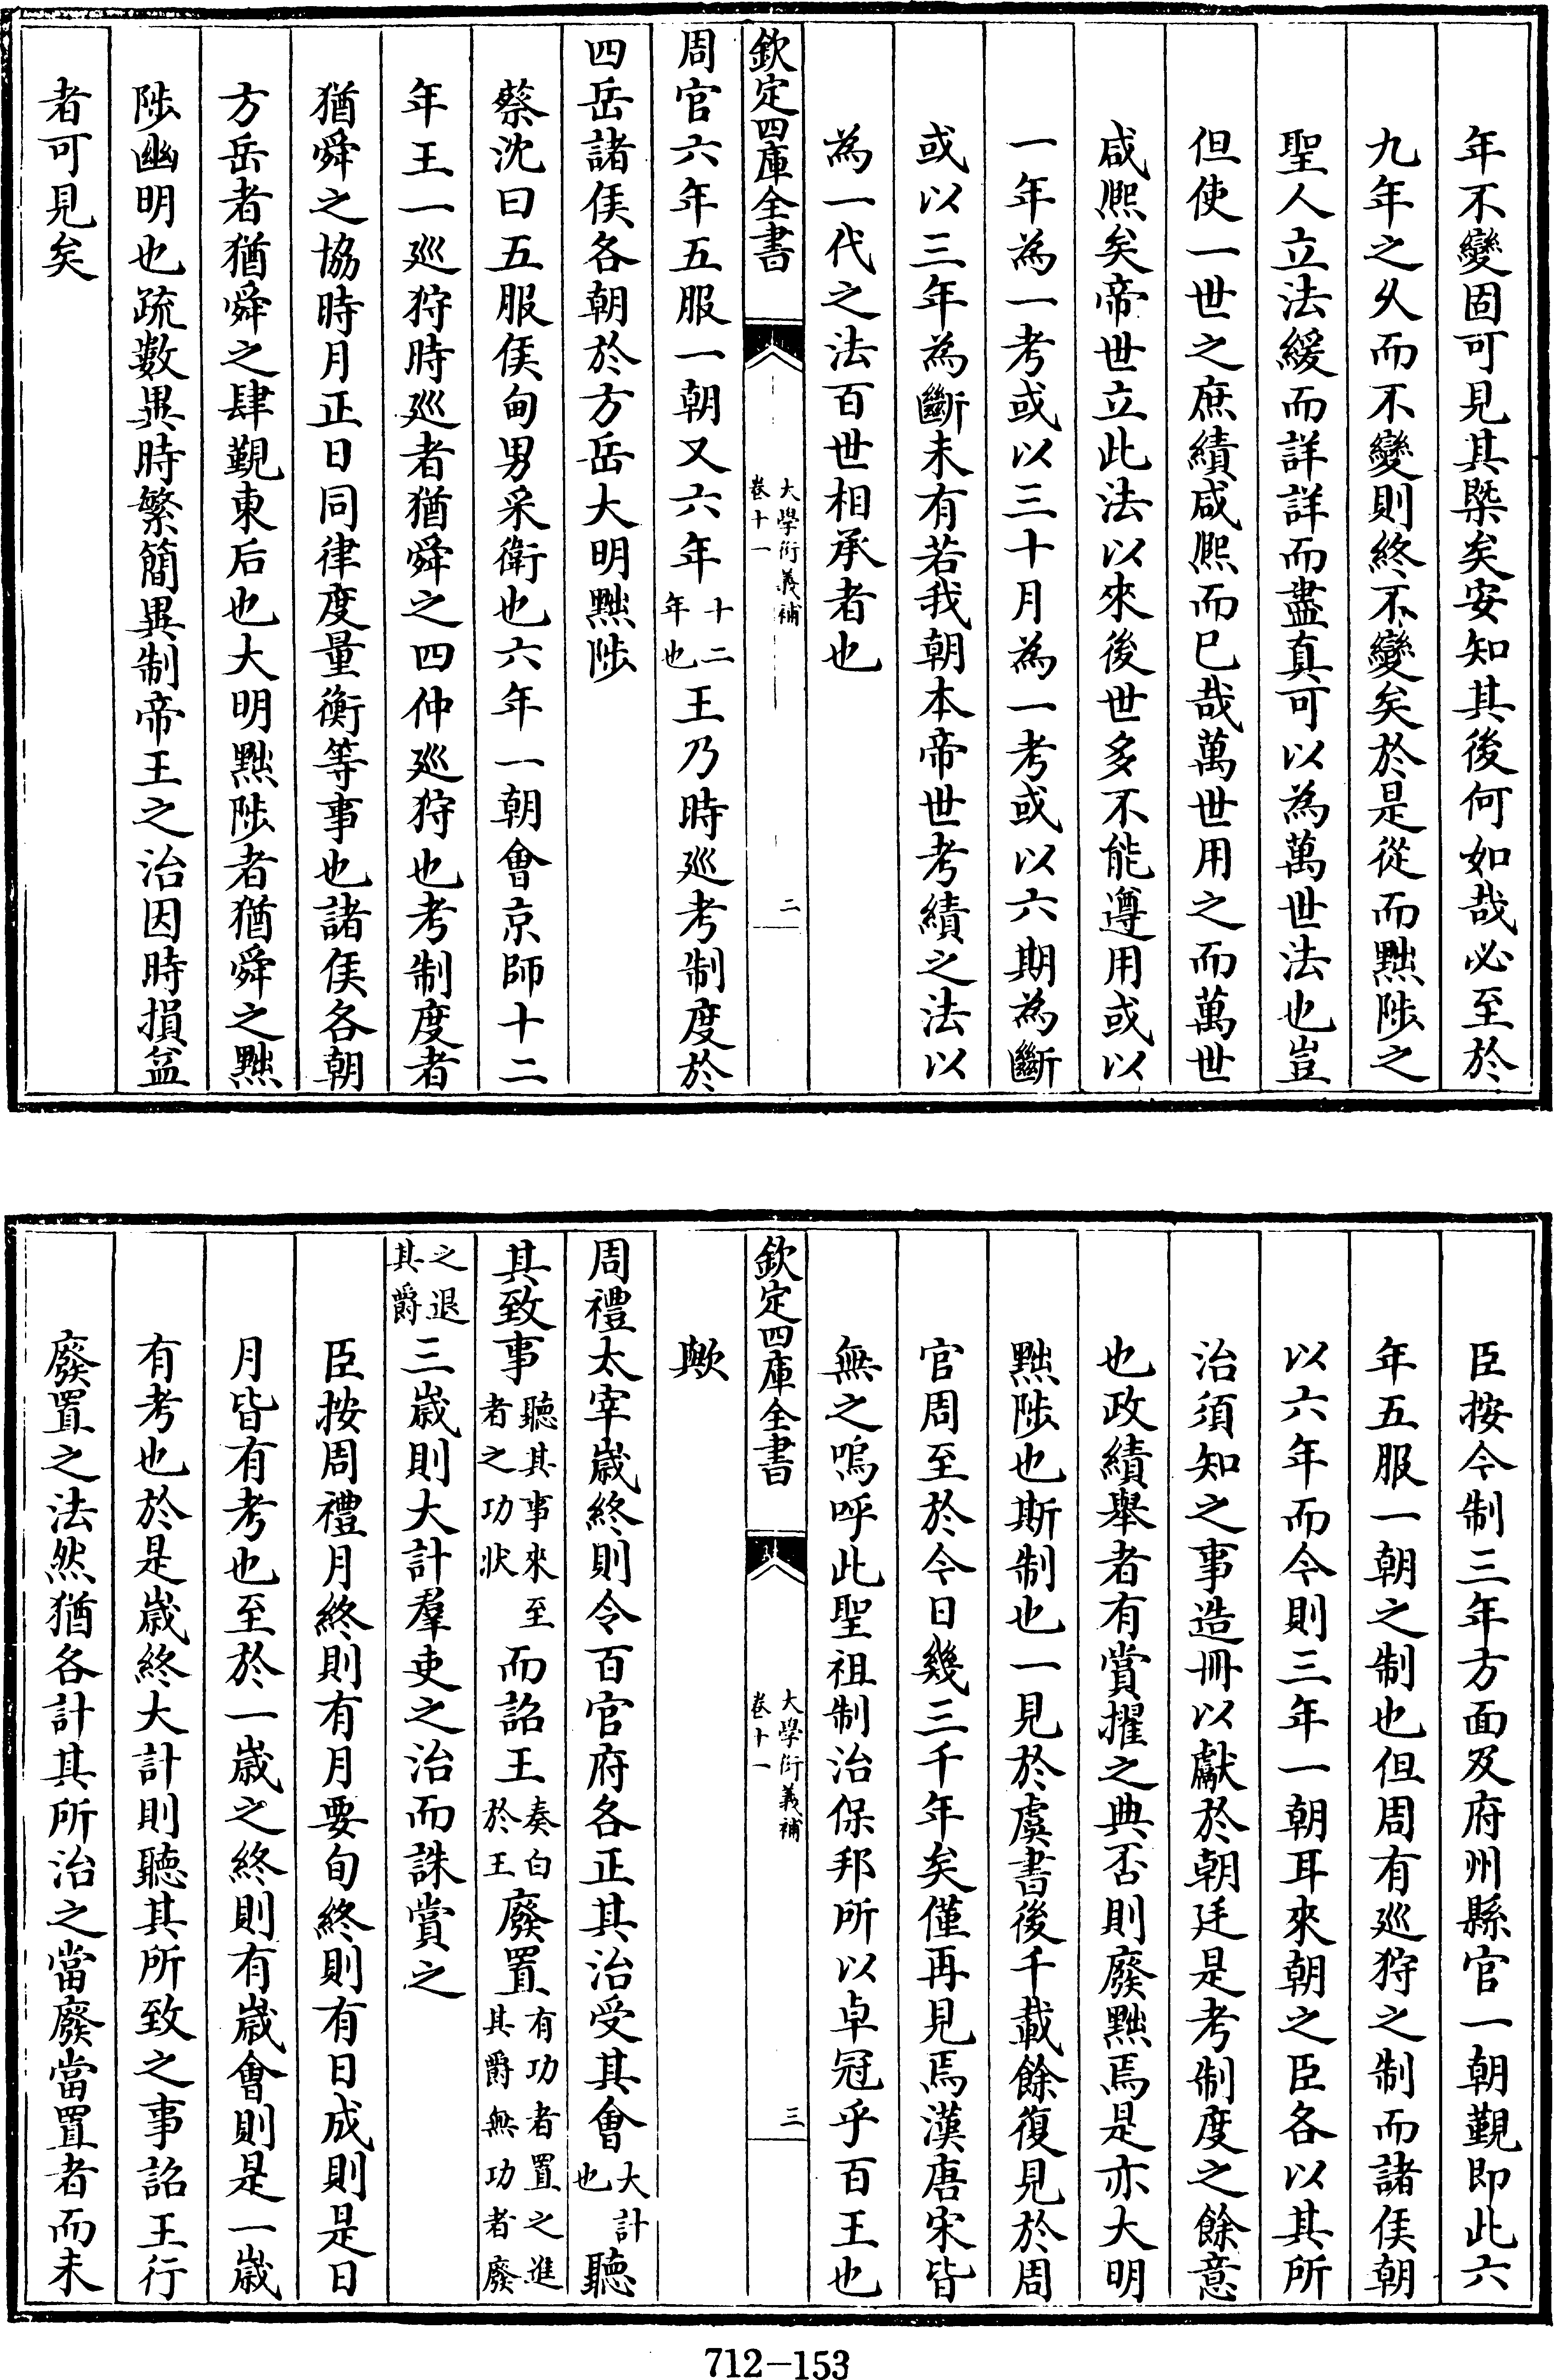 年不變固可見其槩矣安知其後何如哉必至於
九年之乆而不變則終不變矣於是從而黜陟之
聖人立法緩而詳詳而盡真可以為萬世法也豈
但使一世之庶績咸熙而已哉萬世用之而萬世
咸熙矣帝世立此法以來後世多不能遵用或以
一年為一考或以三十月為一考或以六期為斷
或以三年為斷未有若我朝本帝世考績之法以
為一代之法百世相承者也
欽定四庫全書
大學衍義補
卷十一
二
周官六年五服一朝又六年十二年也王乃時廵考制度於
四岳諸侯各朝於方岳大明黜陟
蔡沈曰五服侯甸男采衛也六年一朝會京師十二
年王一廵狩時廵者猶舜之四仲廵狩也考制度者
猶舜之協時月正日同律度量衡等事也諸侯各朝
方岳者猶舜之肆覲東后也大明黜陟者猶舜之黜
陟幽明也疏數異時繁簡異制帝王之治因時損益
者可見矣
臣按今制三年方面及府州縣官一朝覲即此六
年五服一朝之制也但周有廵狩之制而諸侯朝
以六年而今則三年一朝耳來朝之臣各以其所
治須知之事造冊以獻於朝廷是考制度之餘意
也政績舉者有賞擢之典否則廢黜焉是亦大明
黜陟也斯制也一見於虞書後千載餘復見於周
官周至於今日幾三千年矣僅再見焉漢唐宋皆
無之嗚呼此聖祖制治保邦所以卓冠乎百王也
歟
欽定四庫全書
大學衍義補
卷十一
三
周禮太宰嵗終則令百官府各正其治受其會大計也聽
其致事聽其事來至者之功狀而詔王奏白於王廢置有功者置之進其爵無功者廢
之退其爵三嵗則大計羣吏之治而誅賞之
臣按周禮月終則有月要旬終則有日成則是日
月皆有考也至於一嵗之終則有嵗會則是一嵗
有考也於是嵗終大計則聽其所致之事詔王行
廢置之法然猶各計其所治之當廢當置者而未
712-153